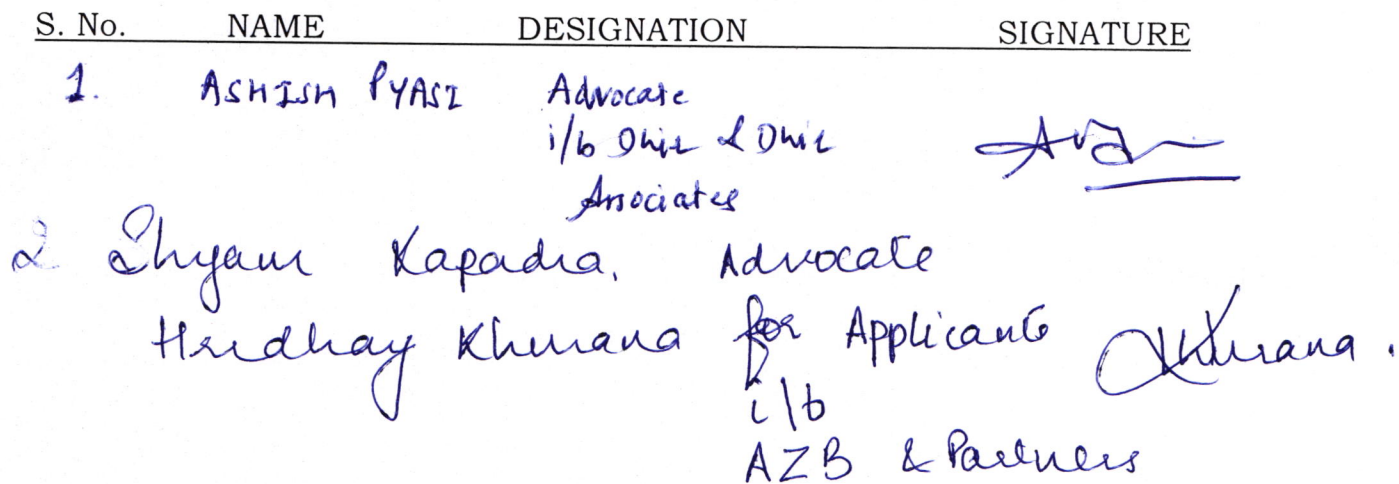 S. No. NAME DESIGNATION SIGNATURE
1. ASHISH PYASI Advocate
i/b Dhir & Dhir
Associates
2 Shyam Kapadia. Advocate
Hridhay Khurana for Applicant Khurana.
i/b
AZB & Partners